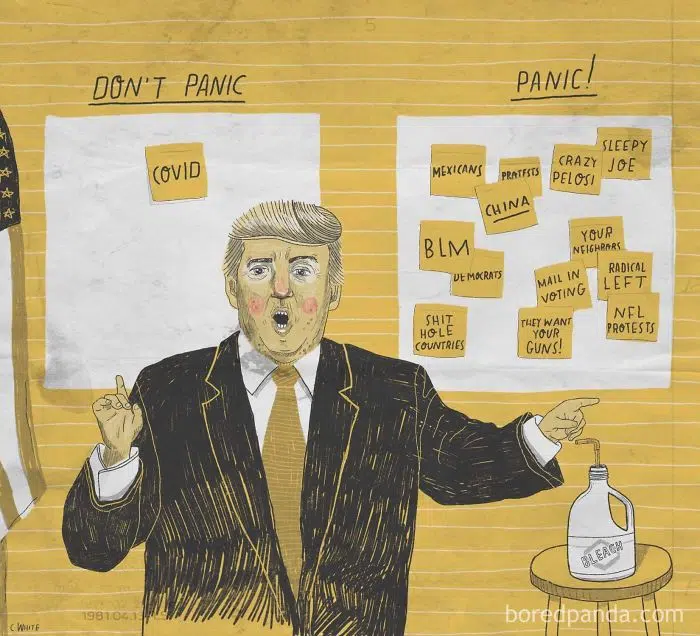 5
DON'T PANIC
PANIC!
COVID
MEXICANS
PROTESTS
CRAZY
PELOSI
SLEEPY
JOE
CHINA
BLM
DEMOCRATS
YOUR
NEIGHBORS
MAIL IN
VOTING
RADICAL
LEFT
SHIT
HOLE
COUNTRIES
THEY WANT
YOUR
GUNS!
NFL
PROTESTS
BLEACH
C. WHITE
boredpanda.com